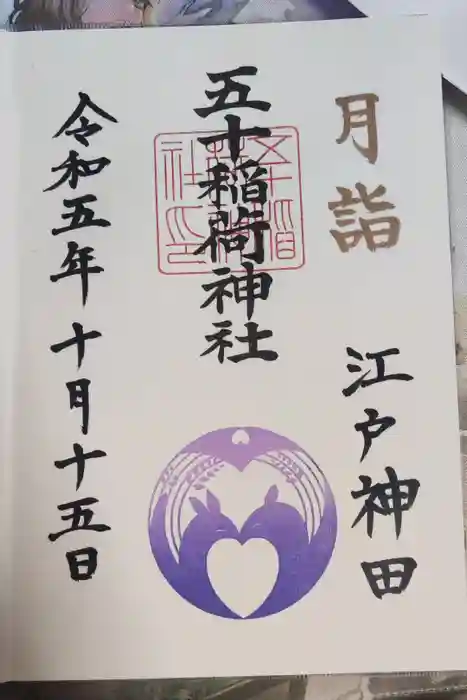 月詣
江戸神田
五十稲荷神社
令和五年十月十五日